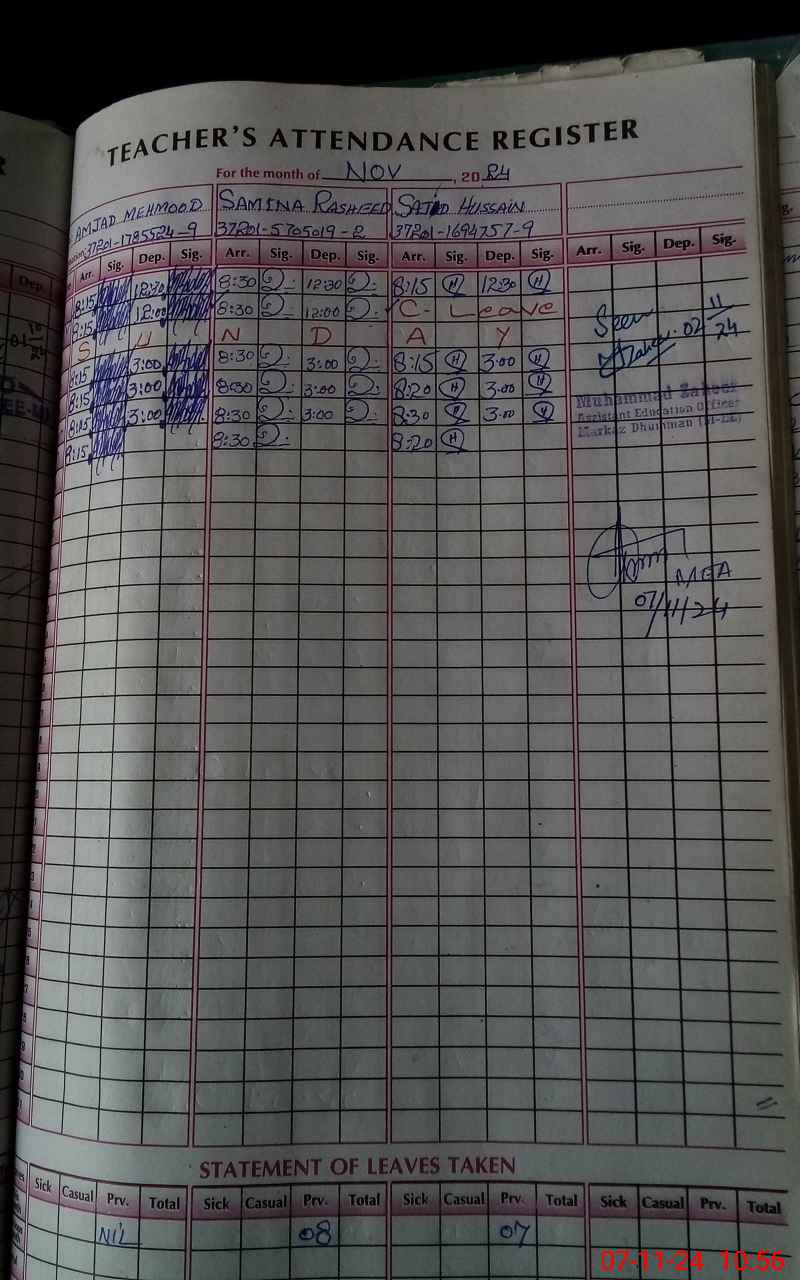 TEACHER'S ATTENDANCE REGISTER
For the month of NOV, 2024
AMJAD MEHMOOD SAMINA RASHEED SAJID HUSSAIN
37201-1785524-9 37201-5705019-2 37201-1694757-9
Dep. Arr. Sig. Dep. Sig. Arr. Sig. Dep. Sig. Arr. Sig. Dep. Sig. Arr. Sig. Dep. Sig.
8:15 12:30 8:30 12:30 8:15 H 12:30 H
8:15 12:00 8:30 12:00 C- Leave
S U N D A Y
8:15 3:00 8:30 3:00 8:15 H 3:00 H
8:15 3:00 8:30 3:00 8:20 H 3:00 H
8:15 3:00 8:30 3:00 8:30 H 3:00 H
8:15 8:30 8:20 H
Seen
02 11/24
Muhammad Zaheer
Assistant Education Officer
Markaz Dhumman (M-EE)
MEA
07/11/24
STATEMENT OF LEAVES TAKEN
Sick Casual Prv. Total Sick Casual Prv. Total Sick Casual Prv. Total Sick Casual Prv. Total
NIL 08 07
07-11-24 10:56